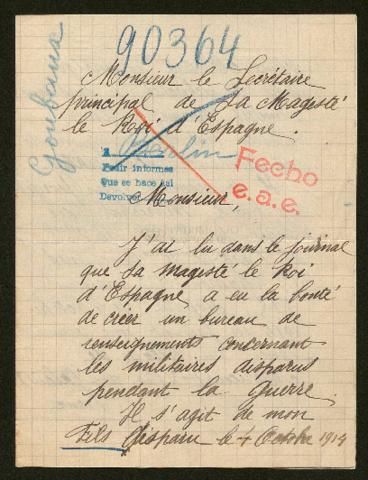 90364
Goubaux
Monsieur le Secrétaire
principal de Sa Magesté
le Roi d'Espagne.
Berlin
Fecho
e.a.e.
Pedir informes
Que se hace así
Devolver
Monsieur,
J'ai lu dans le journal
que Sa Magesté le Roi
d'Espagne a eu la bonté
de créer un bureau de
renseignements concernant
les militaires disparus
pendant la Guerre.
Il s'agit de mon
Fils disparu le 4 Octobre 1914